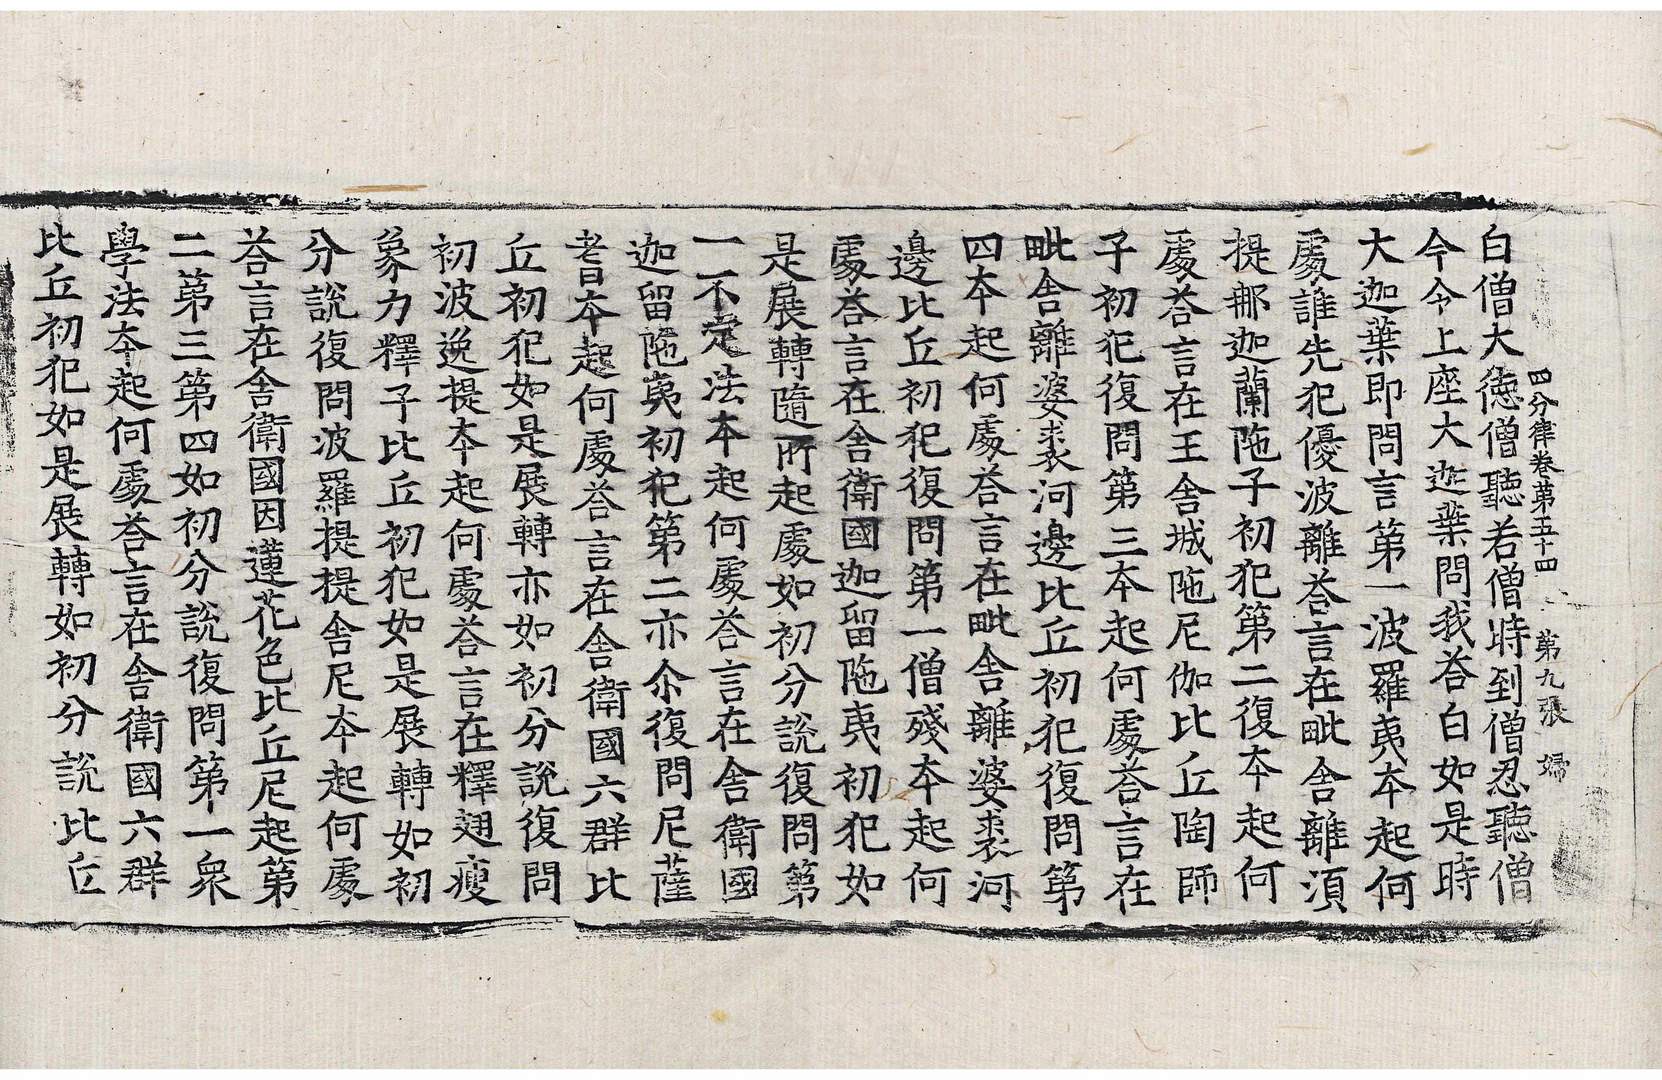 四分律卷第五十四 第九張 婦
白僧大德僧聽若僧時到僧忍聽僧
今令上座大迦葉問我荅白如是時
大迦葉即問言第一波羅夷本起何
處誰先犯優波離荅言在毗舍離須
提那迦蘭陁子初犯第二復本起何
處荅言在王舍城陁尼伽比丘陶師
子初犯復問第三本起何處荅言在
毗舍離婆裘河邊比丘初犯復問第
四本起何處荅言在毗舍離婆裘河
邊比丘初犯復問第一僧殘本起何
處荅言在舍衛國迦留陁夷初犯如
是展轉隨所起處如初分說復問第
一不定法本起何處荅言在舍衛國
迦留陁夷初犯第二亦尒復問尼薩
耆本起何處荅言在舍衛國六群比
丘初犯如是展轉亦如初分說復問
初波逸提本起何處荅言在釋翅瘦
象力釋子比丘初犯如是展轉如初
分說復問波羅提提舍尼本起何處
荅言在舍衛國因蓮花色比丘尼起第
二第三第四如初分說復問第一衆
學法本起何處荅言在舍衛國六群
比丘初犯如是展轉如初分說比丘